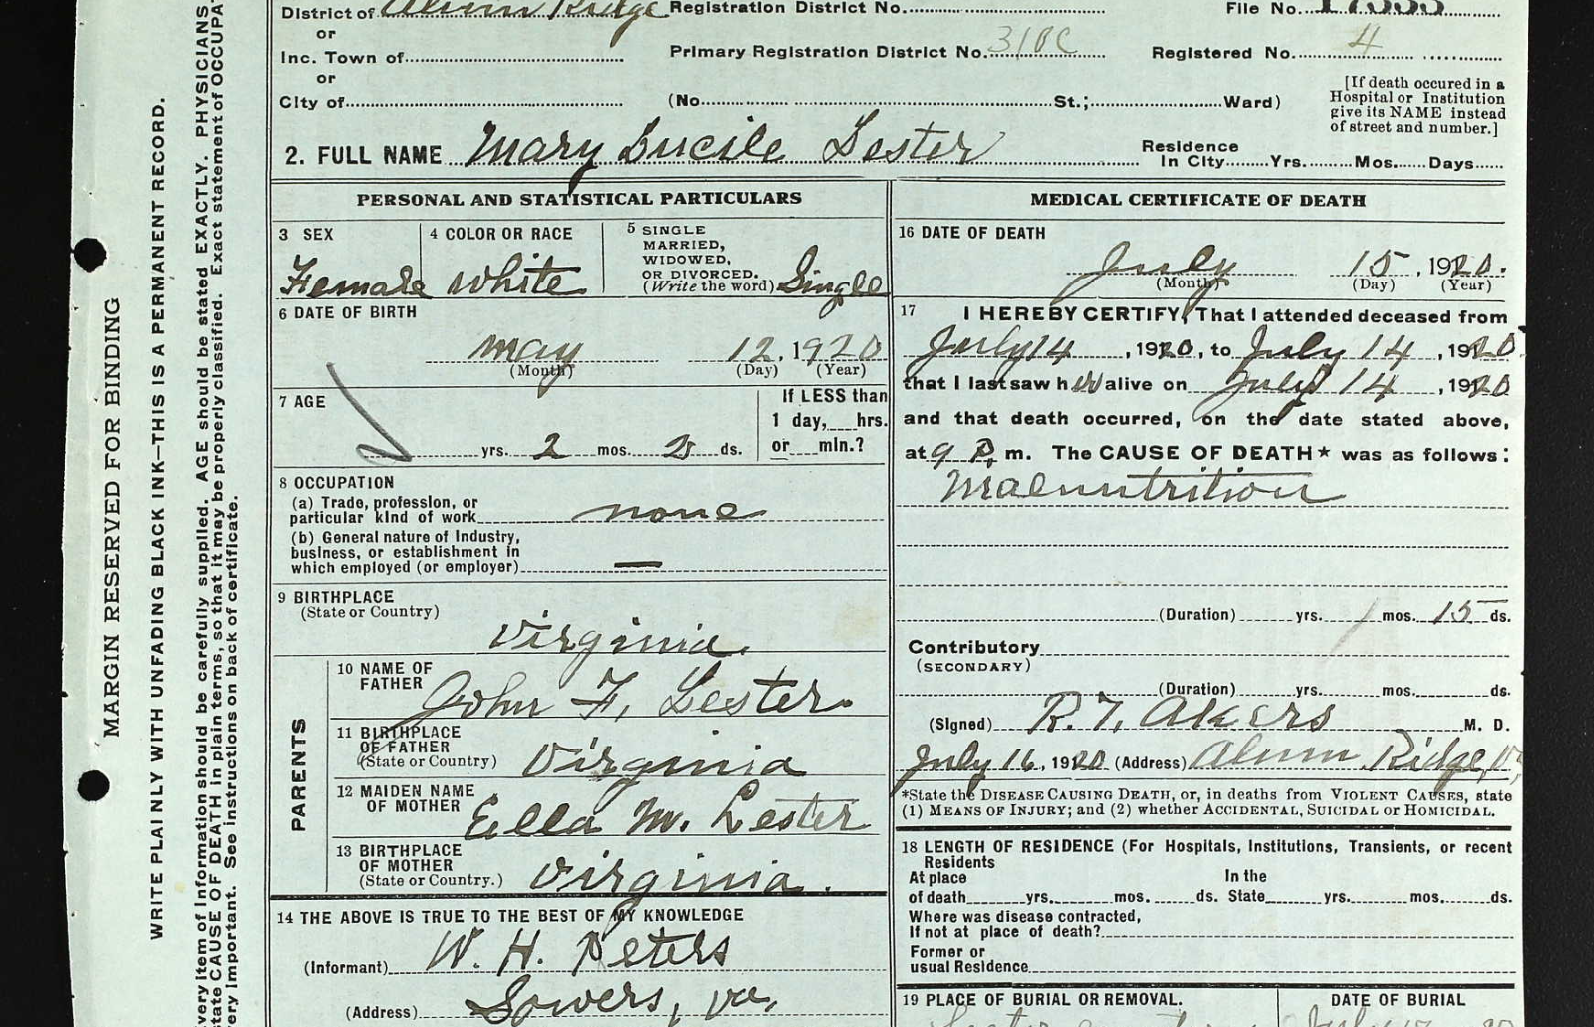 District of Alum Ridge Registration District No. File No. 17555
or
Inc. Town of Primary Registration District No. 318C Registered No. 4
or
City of (No. St.; Ward)
[If death occured in a
Hospital or Institution
give its NAME instead
of street and number.]
2. FULL NAME Mary Lucile Lester
Residence
In City Yrs. Mos. Days
PERSONAL AND STATISTICAL PARTICULARS
3 SEX
Female
4 COLOR OR RACE
white
5 SINGLE
MARRIED,
WIDOWED,
OR DIVORCED.
(Write the word) Single
6 DATE OF BIRTH
May 12, 1920
(Month) (Day) (Year)
7 AGE
yrs. 2 mos. 3 ds.
If LESS than
1 day, hrs.
or min.?
8 OCCUPATION
(a) Trade, profession, or
particular kind of work none
(b) General nature of Industry,
business, or establishment in
which employed (or employer) —
9 BIRTHPLACE
(State or Country)
Virginia.
PARENTS
10 NAME OF
FATHER
John F. Lester.
11 BIRTHPLACE
OF FATHER
(State or Country) Virginia
12 MAIDEN NAME
OF MOTHER
Ella M. Lester
13 BIRTHPLACE
OF MOTHER
(State or Country.) Virginia.
14 THE ABOVE IS TRUE TO THE BEST OF MY KNOWLEDGE
(Informant) W. H. Peters
(Address) Sowers, Va,
MEDICAL CERTIFICATE OF DEATH
16 DATE OF DEATH
July 15, 1920.
(Month) (Day) (Year)
17 I HEREBY CERTIFY, That I attended deceased from
July 14, 1920, to July 14, 1920
that I last saw her alive on July 14, 1920
and that death occurred, on the date stated above,
at 9 P. m. The CAUSE OF DEATH* was as follows:
Malnutrition
(Duration) yrs. 1 mos. 15 ds.
Contributory
(SECONDARY)
(Duration) yrs. mos. ds.
(Signed) R. T. Akers M. D.
July 16, 1920 (Address) Alum Ridge, Va,
*State the DISEASE CAUSING DEATH, or, in deaths from VIOLENT CAUSES, state
(1) MEANS OF INJURY; and (2) whether ACCIDENTAL, SUICIDAL or HOMICIDAL.
18 LENGTH OF RESIDENCE (For Hospitals, Institutions, Transients, or recent
Residents
At place In the
of death yrs. mos. ds. State yrs. mos. ds.
Where was disease contracted,
If not at place of death?
Former or
usual Residence
19 PLACE OF BURIAL OR REMOVAL. DATE OF BURIAL
MARGIN RESERVED FOR BINDING
WRITE PLAINLY WITH UNFADING BLACK INK—THIS IS A PERMANENT RECORD.
very item of Information should be carefully supplied. AGE should be stated EXACTLY. PHYSICIANS
state CAUSE OF DEATH in plain terms, so that it may be properly classified. Exact statement of OCCUPA
very Important. See instructions on back of certificate.